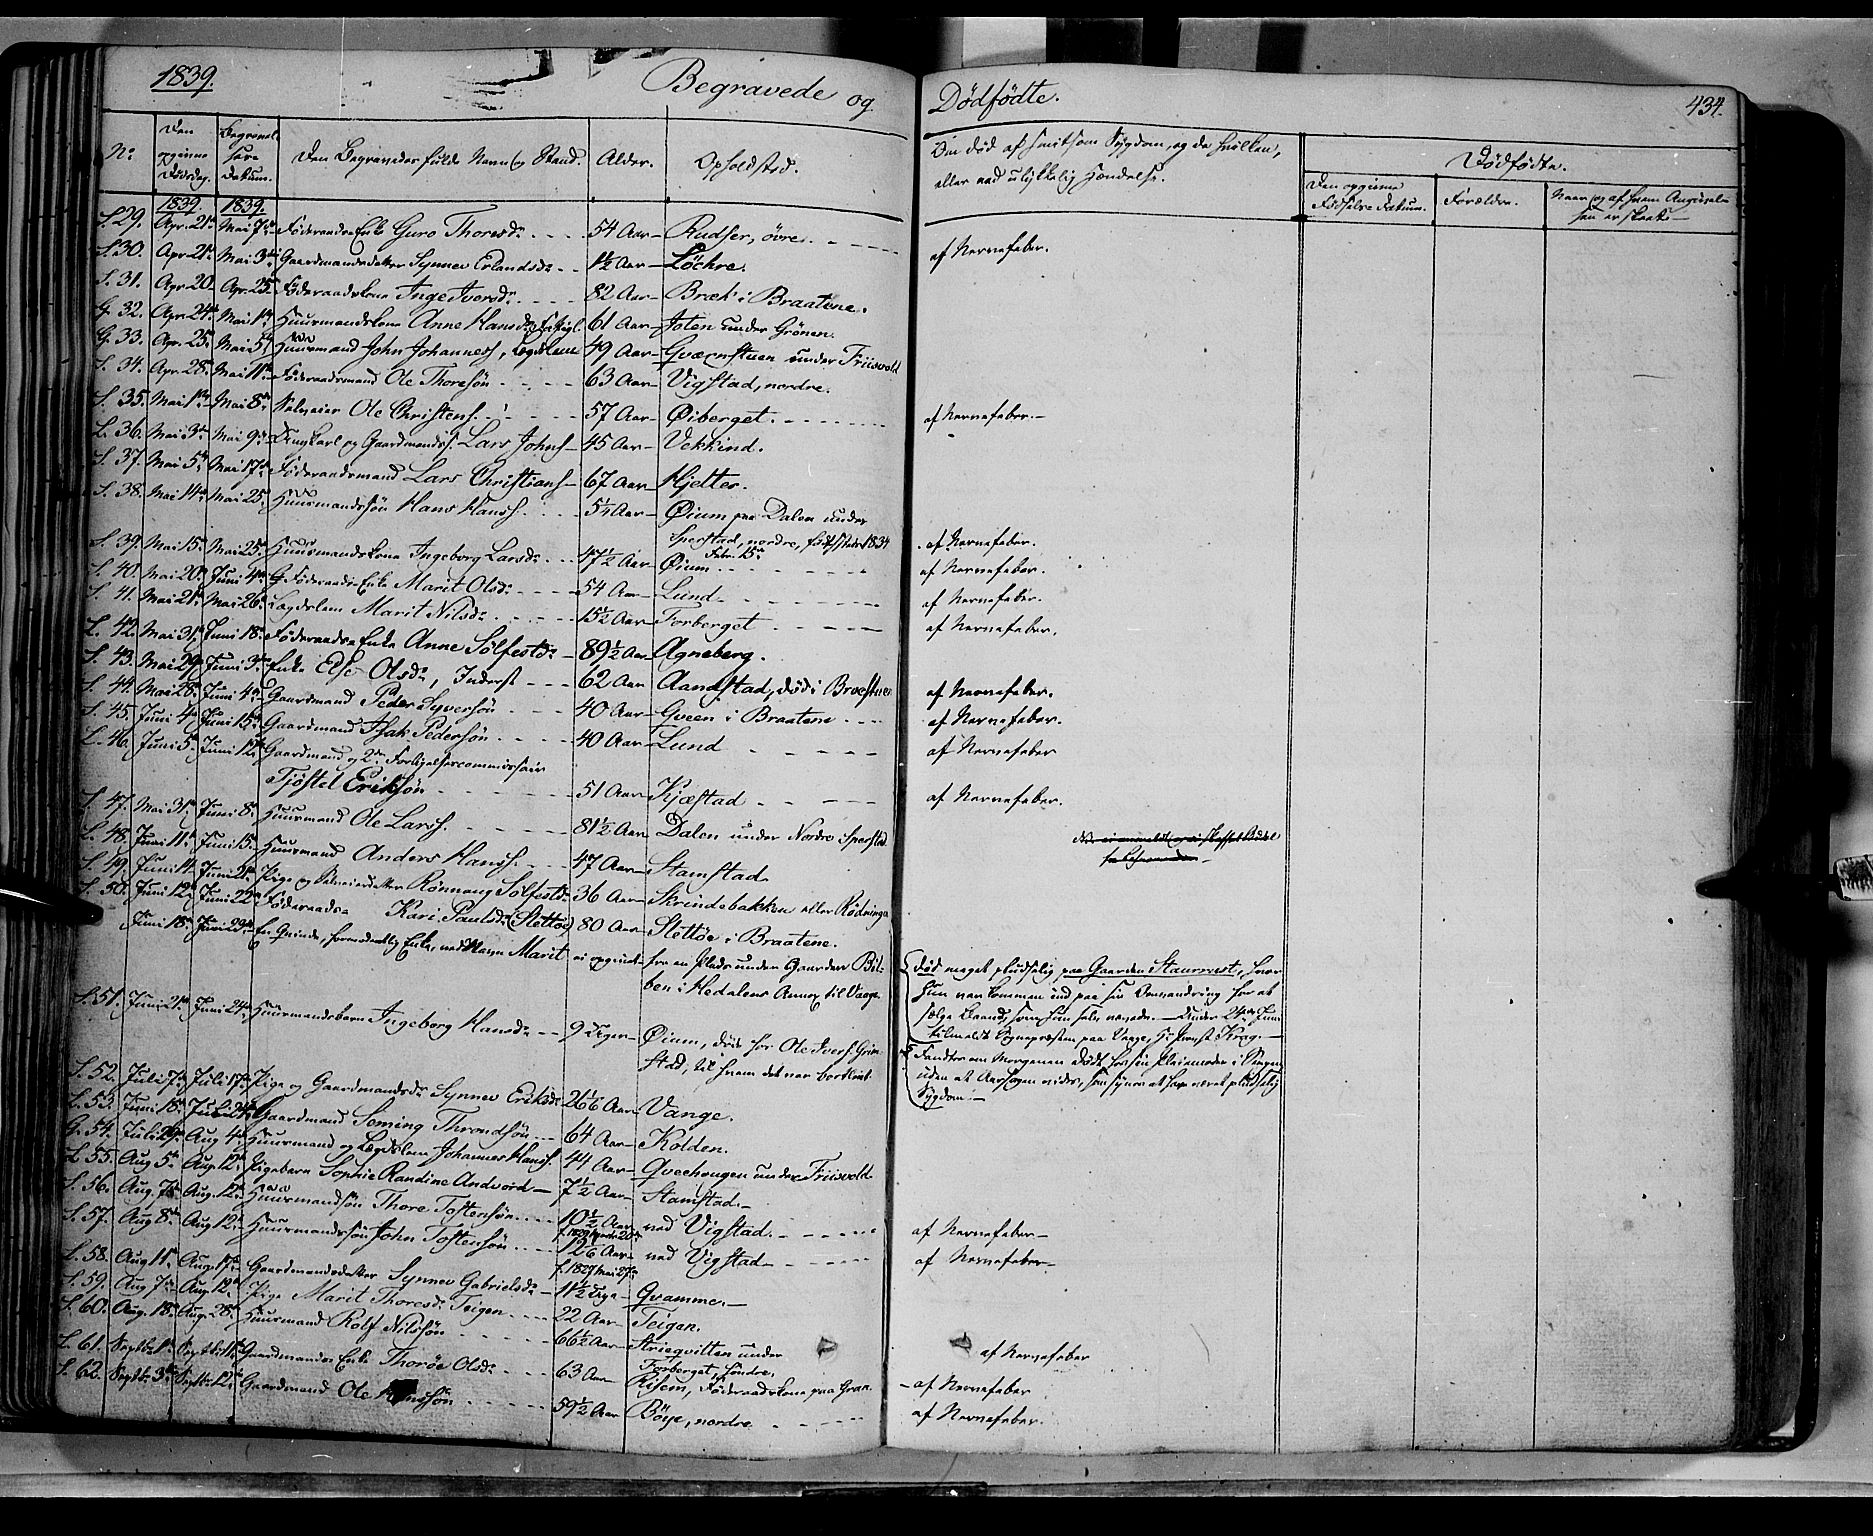 1839.
Begravede og
Dödfödte.
434.
No
Den opgivne Dödsdag.
Begravelsens Datum.
Den Begravedes fulde Navn og Stand.
Alder.
Opholdsted.
Om död af smitsom Sygdom, og da hvilken,
eller ved ulykkelig Hændelse.
Dödfödte.
Den opgivne Födsels Datum.
Forældre.
Naar og af hvem Anmeldelsen er skeet.
1839 1839.
S. 29. Apr. 21de Mai 7de Föderaads Enke Guro Thoresdr 54 Aar Rudser, övre. af Nervefeber.
S. 30. Apr. 21de Mai 3die Gaardmandsdatter Synnev Erlandsdr 1½ Aar Löchre.
S. 31. Apr. 20. Apr. 25. Föderaadskone Inge Iversdr 82 Aar Bræk i Braatene.
G. 32. Apr. 24de Mai 1ste Huusmandskone Anne Hansdr 61 Aar Joten under Grönen.
G. 33. Apr. 25de Mai 5te Huusmand John Johanness., Lægdslem 49 Aar Gværnstuen under Friisvold
S. 34. Apr. 28de Mai 11te Föderaadsmand Ole Thoresön 63 Aar Vigstad, nordre.
S. 35. Mai 1ste Mai 8de Selveier Ole Christens. 57 Aar Öiberget. af Nervefeber.
L. 36. Mai 3die Mai 9de Ungkarl og Gaardmandss. Lars Johns. 45 Aar Vekkind.
S. 37. Mai 5te Mai 17de Föderaadsmand Lars Christians. 67 Aar Hjetter.
S. 38. Mai 14de Mai 25. Huusmandssön Hans Hanss. 5¼ Aar Öium paa Dalen under
Sperstad, nordre, 1834 Febr. 15de af Nervefeber.
S. 39. Mai 15de Mai 25. Huusmandskone Ingeborg Larsdr 47½ Aar Öium af Nervefeber.
S. 40. Mai 20de Juni 4de Föderaads Enke Marit Olsdr 54 Aar Lund. af Nervefeber.
S. 41. Mai 21de Mai 26de Lægdslem Marit Nilsdr 15½ Aar Forberget af Nervefeber.
L. 42. Mai 31te Juni 18. Föderaads Enke Anne Sölfestdr 89½ Aar Agneberg.
S. 43. Mai 29. Juni 3die Enke Else Olsdr, Inderst 62 Aar Aandstad, död i Broestuen af Nervefeber.
S. 44. Mai 28. Juni 4de Gaardmand Peder Syversön 40 Aar Gveen i Braatene af Nervefeber.
S. 45. Juni 4de Juni 15de Gaardmand Isak Pedersön 40 Aar Lund af Nervefeber
L. 46. Juni 5te Juni 12te Gaardmand og 2den Forligelsescommissair
Tjöstel Eriksön 51 Aar Kjæstad af Nervefeber.
S. 47. Mai 31te Juni 8de Huusmand Ole Larss. 81½ Aar Dalen under Nordre Sperstad.
L. 48. Juni 11te Juni 15. Huusmand Anders Hanss. 47 Aar Stamstad
S. 49. Juni 14. Juni 21de Pige og Selveierdatter Rönnaug Sölfestdr 36 Aar Skrindebakken eller Rödninga
S. 50. Juni 12te Juni 22de Föderaads- Kari Paulsdr (Stettöe) 80 Aar Stettöe i Braatene.
Juni 18de Juni 23de En Qvinde, formodentlig Enke, ved Navn Marit ei opgivet fra en Plads under Gaarden Bilben i Hedalens Annex til Vaage.
Död meget pludselig paa Gaarden Staurvust, hvor
hun var kommen ind paa sin Omvandring for at
sælge Baand, som hun selv vævede. Under 24de Juni
tilmeldt Sognepræsten paa Vaage, Hr Provst Krag.
S. 51. Juni 21de Juni 24de Huusmandsbarn Ingeborg Hansdr 9 Uger Öium, död hos Ole Ivers. Grinstad, til hvem det var bortsat.
Fandtes om Morgenen dödt hos sin Pleiemoder i Sengen
uden at Aarsagen vides, som synes at have været pludselig
Sygdom.
S. 52. Juli 7de Juli 17de Pige og Gaardmandsdr Synnev Eriksdr 26⅙ Aar Vange.
L. 53. Juni 18. Juli Gaardmand Soming Throndsön 64 Aar Kolden.
G. 54. Juli 29. Aug 4de Huusmand og Lægdslem Johannes Hanss. 44 Aar Qveehougen under Friisvold
L. 55. Aug 5te Aug. 12te Pigebarn Sophie Randine Andvord 7½ Aar Stamstad.
S. 56. Aug. 7de Aug. 12te Huusmandssön Thore Tostensön 10½ Aar ved Vigstad. af Nervefeber
S. 57. Aug 8de Aug 12te Huusmandssön John Tostensön 12 Aar f. 1827 Mai 27de ved Vigstad af Nervefeber
L. 58. Aug 11te Aug. 17de Gaardmandsdatter Synnev Gabrielsdr 11½ Uge Qvamme.
S. 59. Aug 7de Aug. 12te Pige Marit Thoresdr Teigen 22 Aar Teigen.
S. 60. Aug. 18de Aug. 28de Huusmand Rolf Nilssön 66½ Aar Striegvitten under
Forberget, söndre. af Nervefeber
L. 61. Septbr 1ste Septbr 11te Gaardmands Enke Thoröe Olsdr 63 Aar Risem, Föderaadskone paa Gran. af Nervefeber
S. 62. Septbr 3die Septbr 12te Gaardmand Ole 59½ Aar Böye, nordre af Nervefeber.